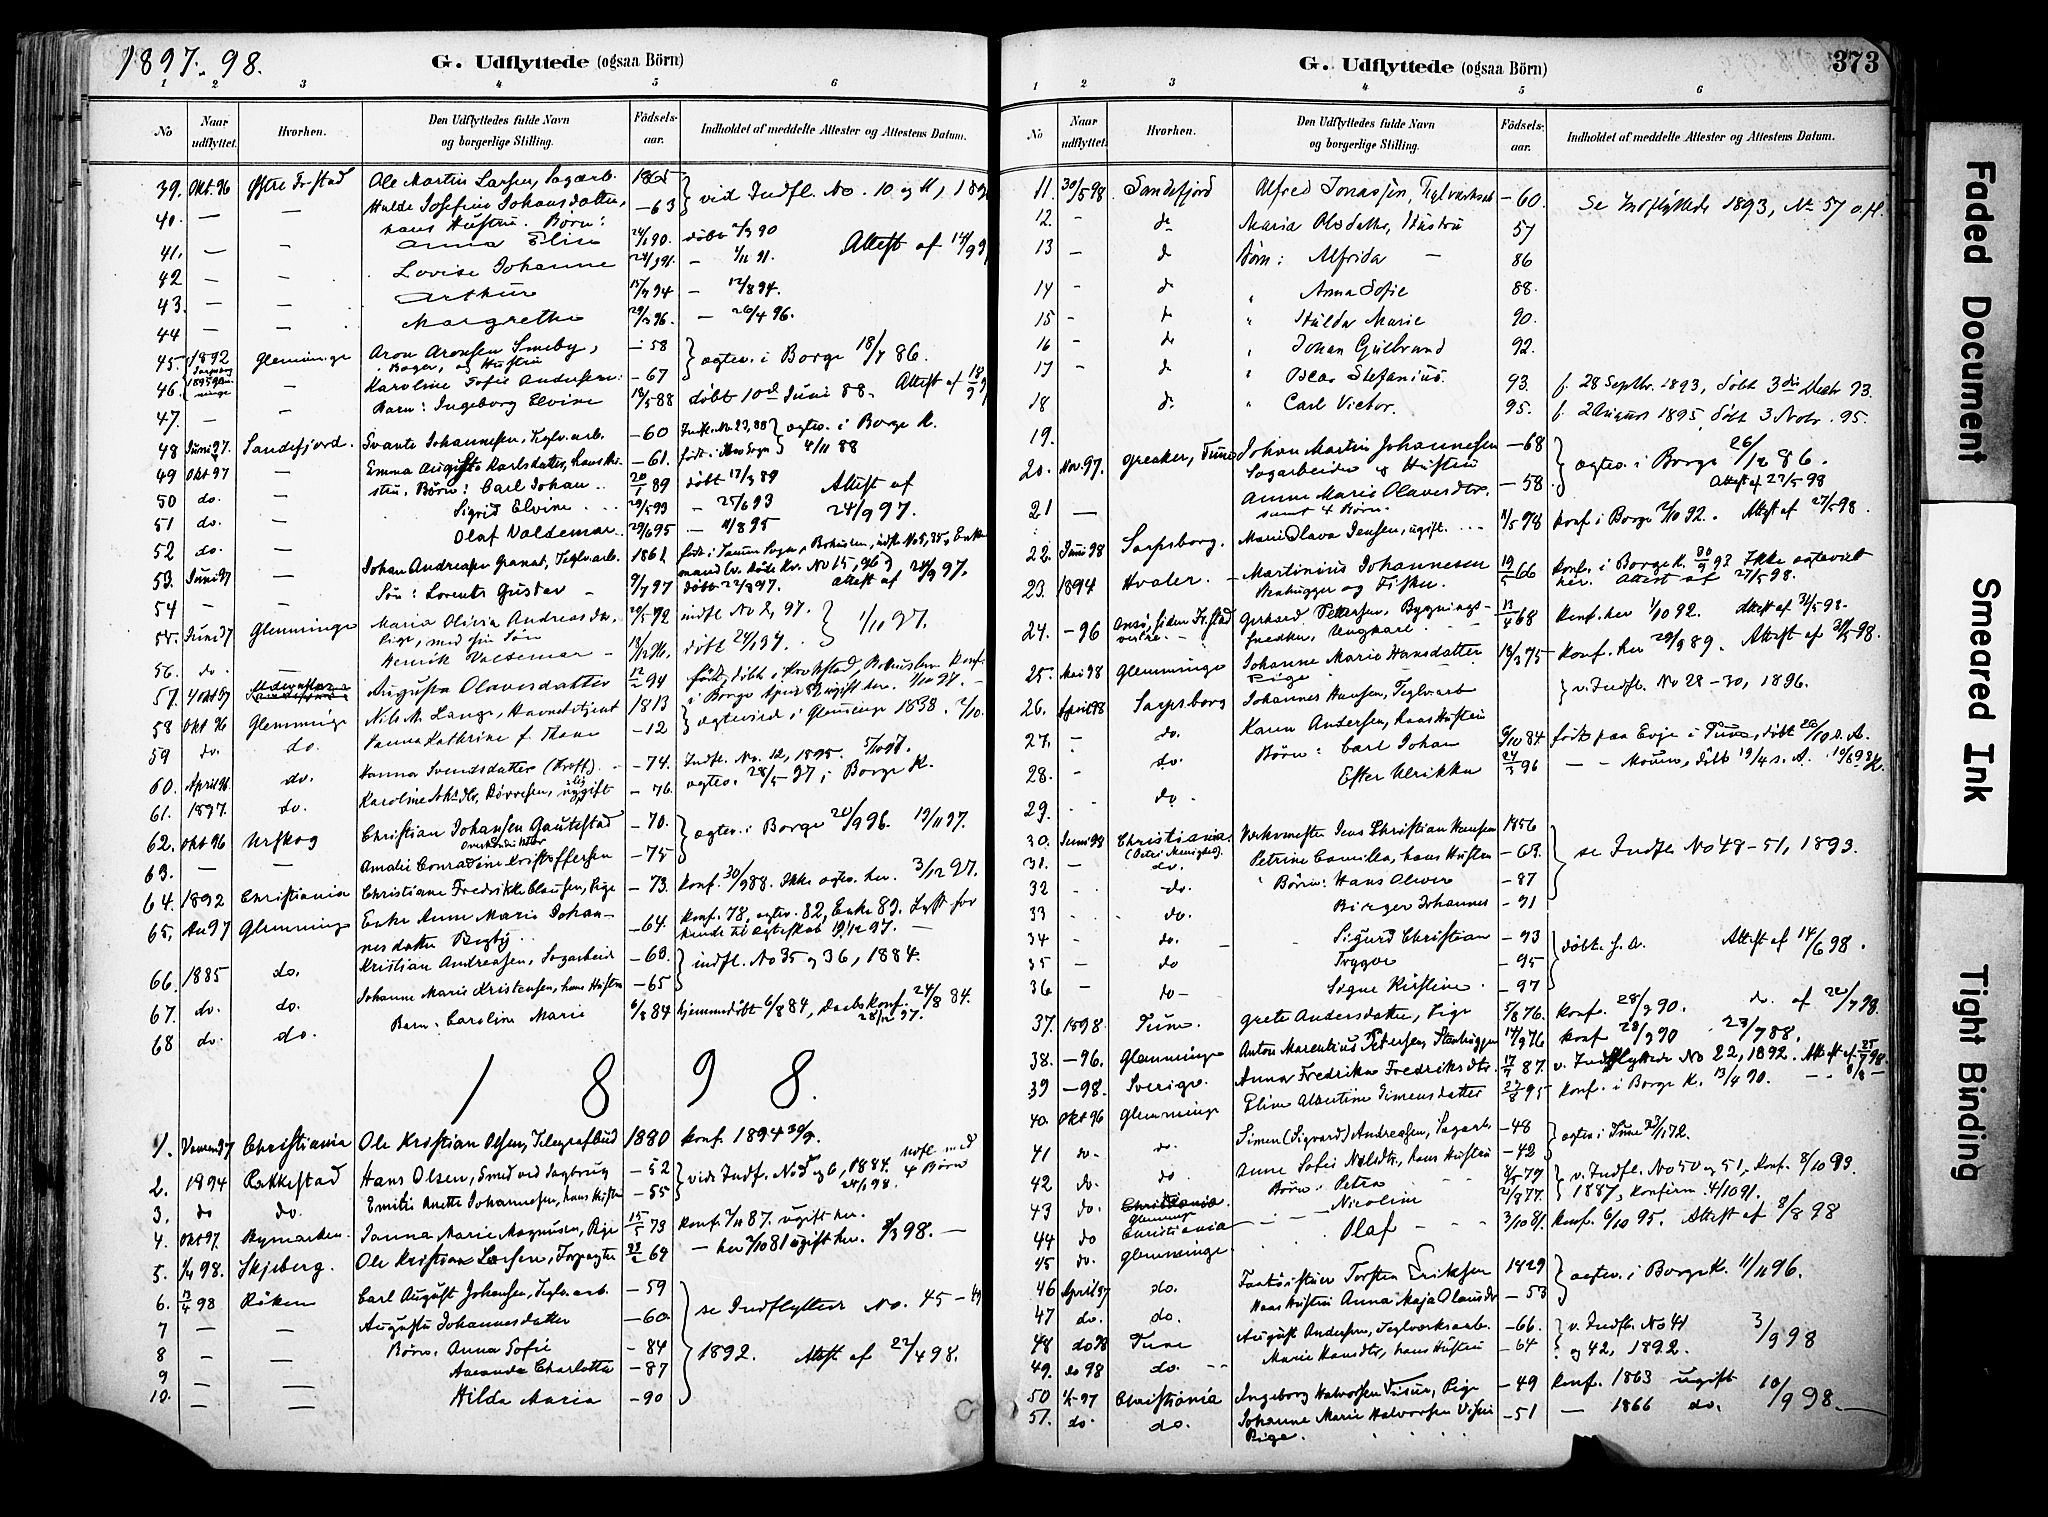 1897-98.
G. Udflyttede (ogsaa Börn)
1 2 3 4 5 6
No
Naar udflyttet.
Hvorhen.
Den Udflyttedes fulde Navn og borgerlige Stilling.
Födsels-aar.
Indholdet af meddelte Attester og Attestens Datum.
39. Okt. 96 Østre Fr.stad Ole Martin Larsen, Sagarb. 1865
40. — — Hulda Josefine Johansdatter, hans Hustru. Børn: —63 vid Indfl. No. 10 og 11, 189
41. — — Anna Elise 90. døbt 90 Attest af
42 — — Lovise Johanne 91. — 91.
43. — — Arthur 94 — 12/8 94.
44 — — Margrethe 29/3 96. — 26/4 96.
45. 1892 Glemminge Aron Aronsen Smeby, Bager, og Hustru —58 ægtev. i Borge 18/7 86.
46. — Karoline Sofie Andersen: —67
47. — — Barn: Ingeborg Elvine 88 døbt 10de Juni 88. Attest af
48 Juni 97. Sandefjord. Svante Johannesen, Teglv.arb. —60 Indfl. No. 23, 88 ægtev. i Borge K.
49 Okt 97 — Emma Augusta Karlsdatter, hans Hu- —61. 4/11 88
50 do. — stru, Børn: Carl Johan 89 døbt 17/3 89 Attest af
51 do. — Sigrid Elvine 93 — 25/6 93 24/9 97.
52 do. — Olaf Valdemar 29/6 95 — 11/8 95
53. Juni 97 — Johan Andreasen Granat, Teglv.arb. 1861
54 — — Søn: Lorents Gustav 97 døbt 97. Attest af 24/9 97.
55. Juni 97 Glemminge Maria Olivia Andreasdtr. Pige, med sin Søn 20/5 72 indfl No 2, 97. 1/11 97.
56. do — Henrik Valdemar 96. døbt 24/1 97.
57. Augusta Olavesdatter født, døbt i Krokstad, Bohuslen konf. i Borge April 82 ugift her.
58 Okt 96 Glemminge Nils M. Lange, Havnebetjent 1813 ægteviet i Glemminge 1838.
59 do. do. Hanna Kathrine f. Thane —12
60. April 96 do. Hanna Svendsdatter —74. Indfl. No. 12, 1895.
61. 1897. do. Karoline ugift —76. ægtev. i Borge K.
62. Okt 96 Urskog Christian Johansen Gautestad —70. ægtev. i Borge 20/9 96. 19/11 97.
63. — — Amalie Conradine Kristoffersen —75
64. 1892 Christiania Christiane Fredrikke Clausen, Pige —73. konf. 30/9 88. Ikke ægtev. her. 3/12 97.
65. 97 Glemminge Enke Anne Marie Johan- —64. konf. 78, ægtev. 82, Enke 89. Lyst for-
nesdatter kende til Ægteskab 97.
66. 1885 do. Kristian Andreasen, Sagarbeid —60. indfl. No 35 og 36, 1884.
67. do. do. Johanne Marie Kristensen, hans Hustru —65
68 do. do. Barn: Caroline Marie 6/8 84 hjemmedøbt 6/8 84, Daabs konf. 24/8 84.
1898.
1. Christiania Ole Kristian Olsen, Telegrafbud 1880 konf. 1894
2. 1894 Rakkestad Hans Olsen, Smed ved Sagbrug —52 vide Indfl. No 5 og 6, 1884. udfl. med 4 Børn
3. do do. Emilie Anette Johannesen, hans Hustru —55
4. Okt 97. Rymarken Janna Marie Magnusen, Pige 15/5 73 konf. 87. ugift her.
5. 1/4 98. Skjeberg. Ole Kristian Larsen, Forpagter 69 — her 81 ugift her. 98. —
6. 13/4 98 Röken Carl August Johansen, Teglv.arb. —59 se Indflyttede No. 45 – 49
7 — — Augusta Johannesdatter —60
8 — — Børn: Anna Sofie —84 1892. Attest af 22/4 98.
9 — — Amanda Charlotte —87
10. — — Hilda Maria —90
373
G. Udflyttede (ogsaa Börn)
1 2 3 4 5 6
No
Naar udflyttet.
Hvorhen.
Den Udflyttedes fulde Navn og borgerlige Stilling.
Födsels-aar.
Indholdet af meddelte Attester og Attestens Datum.
11. 30/5 98 Sandefjord Alfred Jonassen, Teglværksarb —60. Se Indflyttede 1893, No 57 o.fl.
12. — do Maria Olsdatter, Hustru 57
13 — do Børn: Alfrida 86
14 — do " Anna Sofie 88.
15 — do " Hulda Marie 90.
16 — do " Johan Gulbrand 92.
17 — do " Oscar Stefanius. 93. f. 28 Septbr. 1893, døbt 3die Decbr 93.
18 do " Carl Victor. 95. f. 2 August 1895, døbt 3 Novbr. 95.
19.
20. Nov. 97. Greaker, Tune Johan Martin Johannesen Sagarbeider & Hustru —68 ægtev. i Borge 26/12 86.
21 — Anne Marie Olavesdtr. samt 4 Børn. —58. Attest af 27/5 98
22. Juni 98 Sarpsborg. Marie Olava Jensen, ugift. konf i Borge 2/10 92. Attest af 27/5 98.
23. 1894 Hvaler. Martinius Johannesen Stenhugger og Fisker. 66 konf. i Borge K. Ikke ægteviet her. Attest af 27/5 98.
24. —96 Onsø, siden Fr.stad Gerhard Pettersen, Bygnings-snedker, Ungkarl. 68 konf. her 1/10 92. Attest af 31/5 98.
25. Mai 98 Glemminge Johanne Marie Hansdatter Pige 75 konf. her 29/9 89. Attest af 31/5 98.
26. April 98 Sarpsborg Johannes Hansen, Teglv.arb v. Indfl. No 28–30, 1896.
27. — do. Karen Andersen, hans Hustru
28. — do. Børn: Carl Johan 84. født paa Evje i Tune, døbt
29. do. Ester Ulrikke 24/3 96
30. Juni 98 Christiania (Petri Menighed). Verksmester Jens Christian Hansen 1856 se Indfl. No 48–51, 1893.
31. — do. Petrine Camilla, hans Hustru —63.
32 — do. Børn: Hans Oliver —87
33 do. Birger Johannes —91
34 — do. Sigurd Christian —93 døbt. s. A. Attest af 14/6 98.
35 — do Trygve —95
36 — do — Signe Kirstine —97
37. 1898. Tune. Grete Andersdatter, Pige 5/8 76. konf. 28/9 90. do. af 22/7 98.
38. —96. Glemminge Anton Marentius Petersen, Stenhugger 76 konf 28/9 90 23/7 88.
39 —98. Sverige. Anna Fredrikke Fredriksdtr. 87. v. Indflyttede No 22, 1892. Attest af 98.
40. Okt 96 Glemminge Eline Albertine Simensdatter 95 konf. i Borge K. 13/4 90.
41 do. do. Simen (Sigvard) Andreasen, Sagarb. —48 ægtev. i Tune 72.
42 do. do Anne Sofie Nilsdtr, hans Hustru —42
43 do. Glemminge Børn: Petra 79 v. Indfl. No 50 og 51, konf. 8/10 93.
44 do Christiania Nicoline 77. 1887, konfirm. 4/10 91.
45 do. Glemminge. Olaf 3/10 81. konf. 6/10 95. Attest af 8/8 98
46 April 97 do. Torsten Eriksen 1829 ægtev. i Borge K. 11/11 96.
47 do. do. Hans Hustru Anna Maja Olausdtr —53
48 do 98 Tune August Andersen, Teglværksarb. —66. v. Indfl. No 41 3/9 98
49. do 98 do. Marie Hansdtr, hans Hustru —64 og 42, 1892.
50 97 Christiania Ingeborg Halvorsen Pige —49 konf. 1863 ugift 10/9 98.
51. do. do. Johanne Marie Halvorsen Pige. —51 — 1866 do.
Faded Document
Smeared Ink
Tight Binding